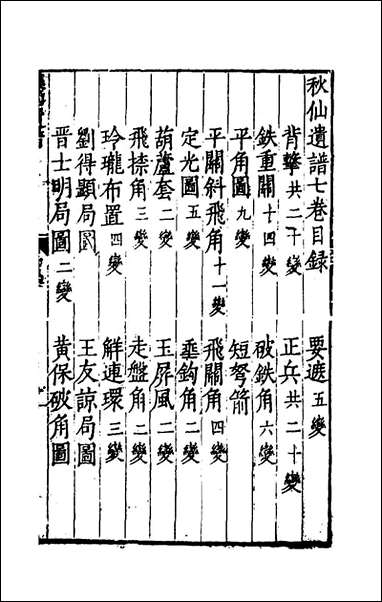 秋仙遺譜七卷目録
背擊共二十變　正兵共二十變
要遮五變
鉄重關十四變　破鉄角六變
平角圖九變　短弩箭
平關斜飛角十一變　飛關角四變
定光圖五變　垂鈎角二變
葫蘆套二變　玉屏風二變
飛捺角三變　走盤角二變
玲瓏布置四變　解連環三變
劉得顯局圖　王友諒局圖
晋士明局圖二變　黄保破角圖